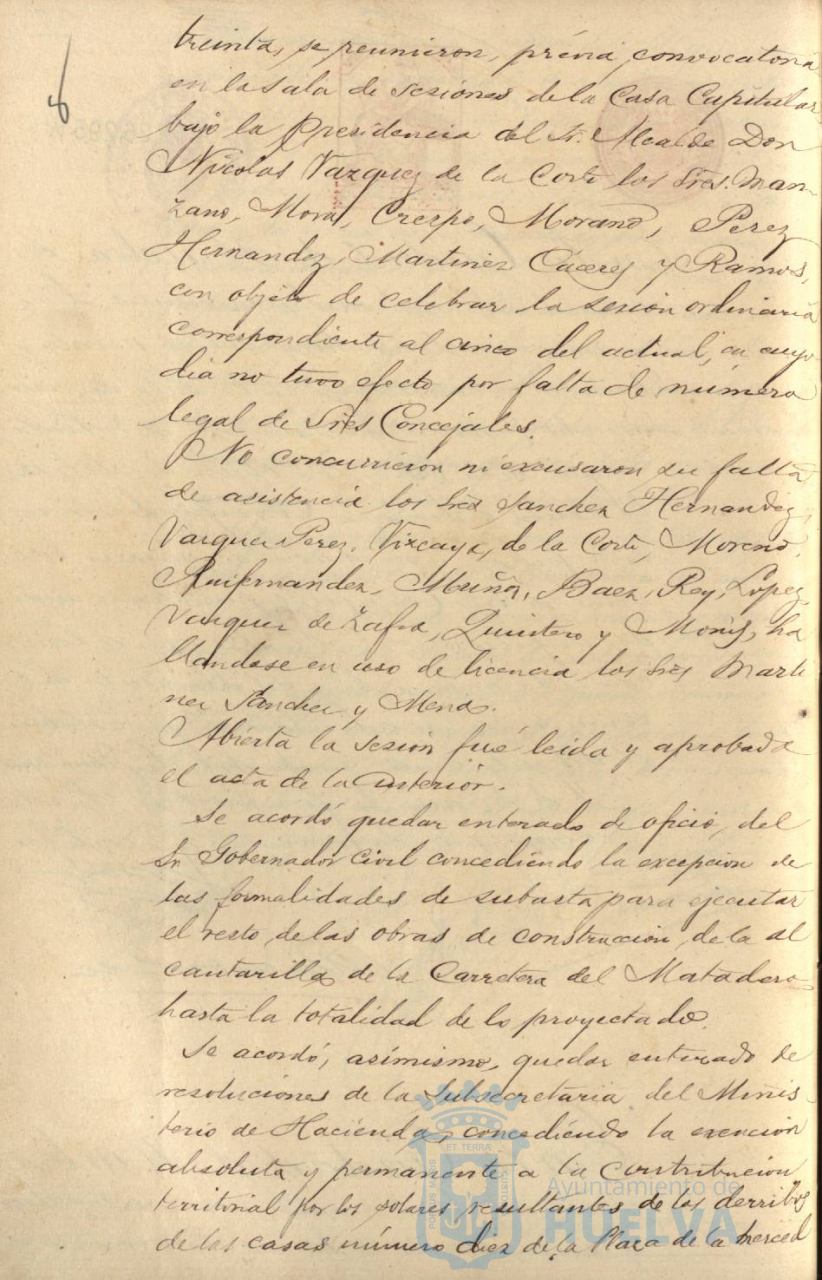 8
treinta, se reunieron, prévia convocatoria
en la Sala de Sesiones de la Casa Capitular
bajo la Presidencia del Sr. Alcalde Don
Nicolas Vazquez de la Corte los Sres. Man-
zano, Mora, Crespo, Morano, Perez
Hernandez, Martinez Cáceres y Ramos,
con objeto de celebrar la sesión ordinaria
correspondiente al cinco del actual, en cuyo
dia no tuvo efecto por falta de número
legal de Sres Concejales.
No concurrieron ni excusaron su falta
de asistencia los Sres Sanchez Hernandez,
Vazquez Perez, Vizcaya, de la Corte, Moreno,
Ruifernandez, Muñoz, Baez, Rey, Lopez,
Vazquez de Zafra, Quintero y Monís, ha
llandose en uso de licencia los Sres Marti
nez Sanchez y Mena.
Abierta la sesión fué leida y aprobada
el acta de la anterior.
Se acordó quedar enterado de oficio, del
Sr. Gobernador Civil concediendo la excepcion de
las formalidades de subasta para ejecutar
el resto de las obras de construccion de la al
cantarilla de la Carretera del Matadero
hasta la totalidad de lo proyectado.
Se acordó, asímismo, quedar enterado de
resoluciones de la Subsecretaria del Minis-
terio de Hacienda, concediendo la exención
absoluta y permanente a la Contribucion
territorial por los solares resultantes de los derribos
de las casas número diez de la Plaza de la Merced
ET TERRAE
Ayuntamiento de
HUELVA